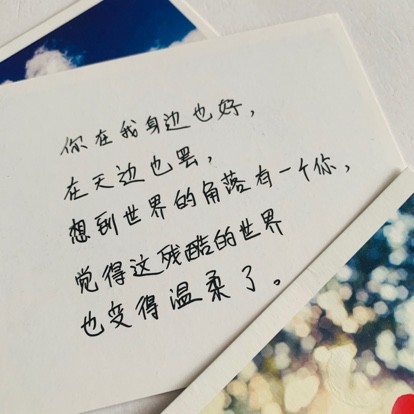 你在我身边也好，
在天边也罢，
想到世界的角落有一个你，
觉得这残酷的世界
也变得温柔了。